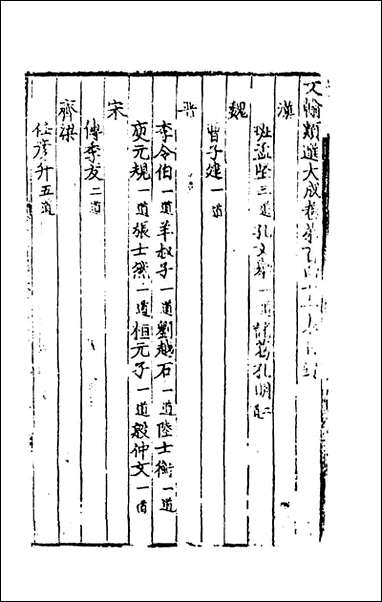 文翰類選大成卷第一百十
漢
班孟堅三道孔文舉一道諸葛孔明二
魏
曹子建一道
晉
李令伯一道羊叔子一道劉越石一道陸士衡一道
庾元規一道張士然一道桓元子一道殷仲文一道
宋
傅季友二道
齊梁
任彥升五道